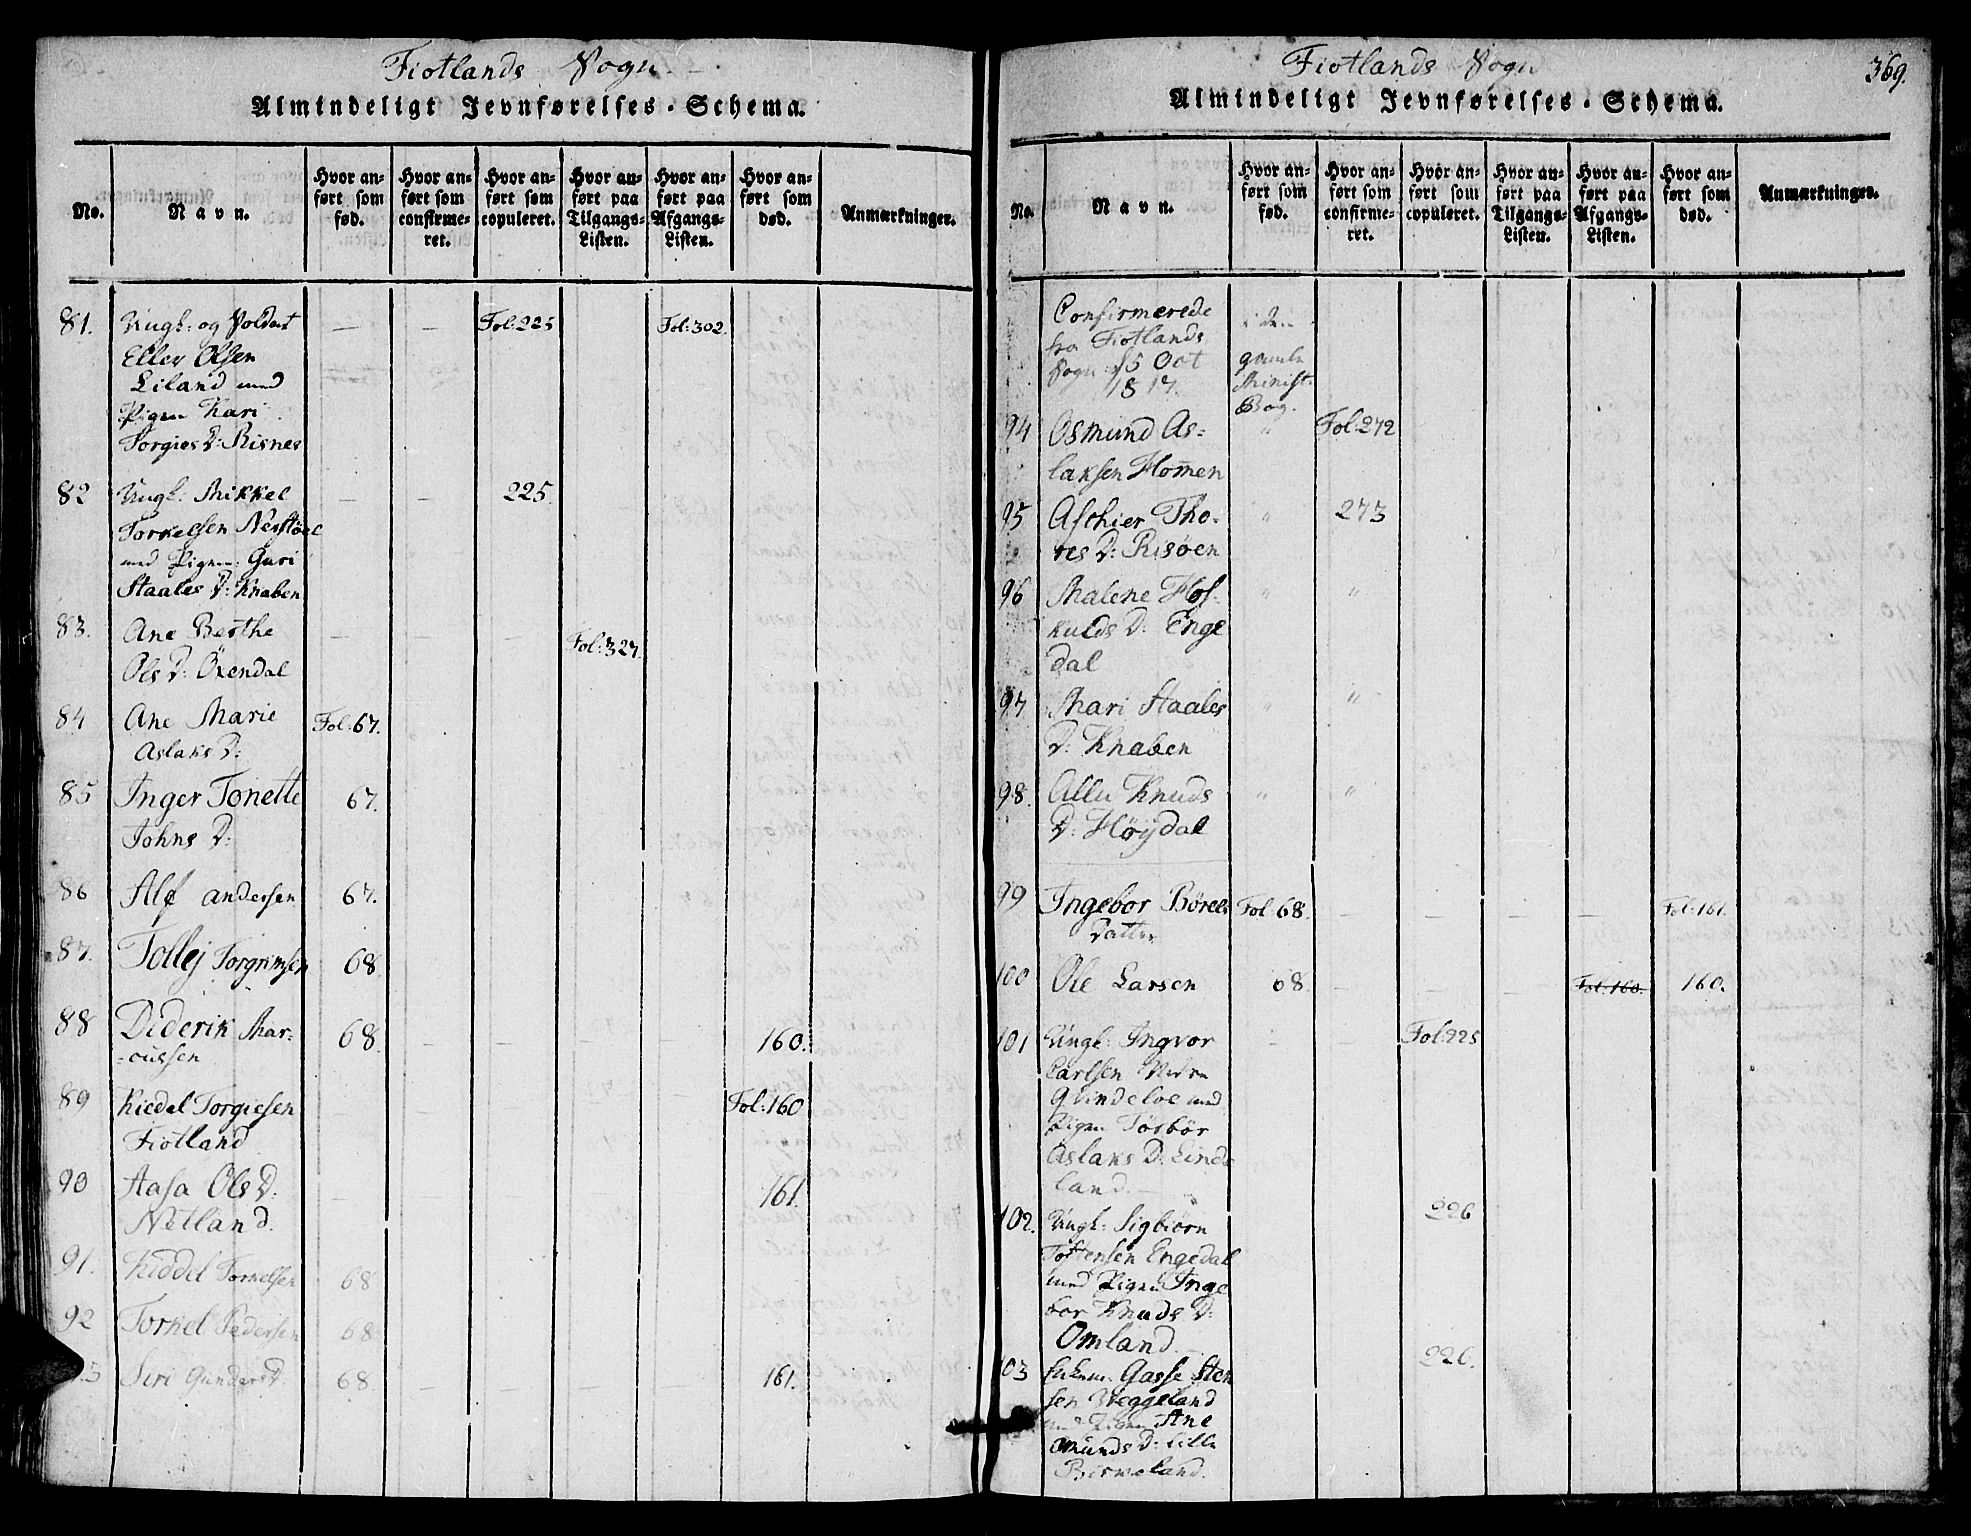 Fiotlands Sogn
Almindeligt Jevnførelses-Schema.
No.
Navn.
Hvor anført som fød.
Hvor anført som confirmeret.
Hvor anført som copuleret.
Hvor anført paa Tilgangs-Listen.
Hvor anført paa Afgangs-Listen.
Hvor anført som død.
Anmærkninger.
81. Ungk: og Soldat — — Fol:225 Fol:302.
Eller Olsen
Liland med
Pigen Kari
Torgies D: Risnes
82 Ungk: Mikkel — — 225.
Torkelsen Nestöel
med Pigen: Guri
Staales D: Knaben
83. Ane Berthe — — — Fol:327.
Ols D: Öxendal
84 Ane Marie Fol:67.
Aslaks D:
85 Inger Tonette 67.
Johns D:
86 Alf andersen 67.
87. Tollej Torgrimsen 68
88 Diderik Mar- 68. — — — — 160.
-cussen
89 Kiedel Torgiesen Fol:160
Fiotland
90 Aasa Ols D. — 161.
Netland.
91. Kiddel Torkelsen 68
92 Torkel Pedersen 68
Siri Gunders D. 68 — — — 161.
Fiotlands Sogn
369.
Almindeligt Jevnførelses-Schema.
No.
Navn.
Hvor anført som fød.
Hvor anført som confirmeret.
Hvor anført som copuleret.
Hvor anført paa Tilgangs-Listen.
Hvor anført paa Afgangs-Listen.
Hvor anført som død.
Anmærkninger.
Confirmerede i den
fra Fiotlands
Sogn: 15 Oct gamle
1817. Minist.
Bog.
94 Osmund As= " Fol:272
laksen Homen
95 Aschier Tho- " 273
res D: Risöen
96 Malene Hos- " "
kulds D: Enge
dal
97 Mari Staales " "
D: Knaben
98. Allu Knuds " "
D: Höydal
99 Ingebor Börels Fol 68. — — — — Fol:161.
Datter
100 Ole Larsen 68. — — — Fol:160. 160.
101 Ungk: Ingvor — — Fol:225
Carlsen Nedre
Qvindeloe med
Pigen Törbör
Aslaks D: Linde
land.
102. Ungk: Sigbiörn 226
Tostensen Engedal
med Pigen Inge
bor Knuds D:
Omland
103 Enkem: Gasse Sten 226.
sen Veggeland
med Pigen Ane
Omunds D: Lille
Birkeland.